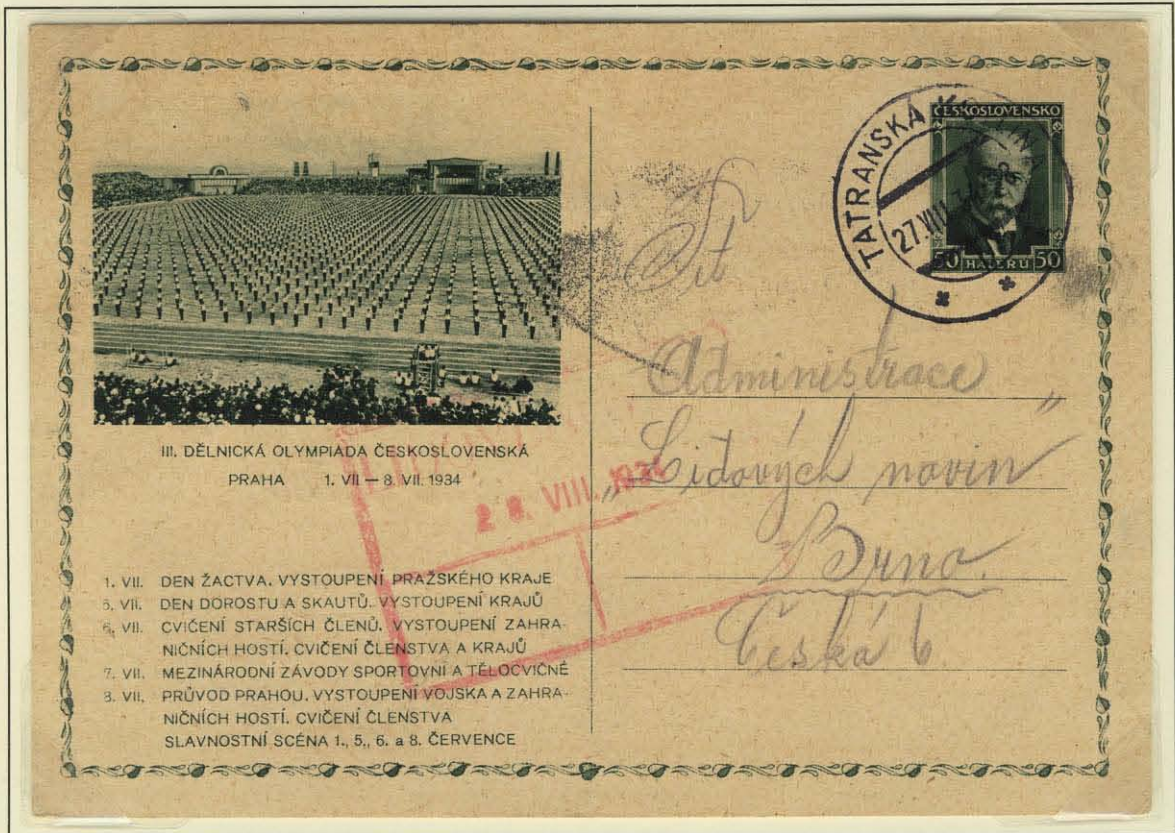 III. DĚLNICKÁ OLYMPIADA ČESKOSLOVENSKÁ
PRAHA 1. VII — 8. VII. 1934
1. VII. DEN ŽACTVA. VYSTOUPENÍ PRAŽSKÉHO KRAJE
5. VII. DEN DOROSTU A SKAUTŮ. VYSTOUPENÍ KRAJŮ
6. VII. CVIČENÍ STARŠÍCH ČLENŮ. VYSTOUPENÍ ZAHRA-
NIČNÍCH HOSTÍ. CVIČENÍ ČLENSTVA A KRAJŮ
7. VII. MEZINÁRODNÍ ZÁVODY SPORTOVNÍ A TĚLOCVIČNÉ
8. VII. PRŮVOD PRAHOU. VYSTOUPENÍ VOJSKA A ZAHRA-
NIČNÍCH HOSTÍ. CVIČENÍ ČLENSTVA
SLAVNOSTNÍ SCÉNA 1., 5., 6. a 8. ČERVENCE
TATRANSKÁ
27.VIII
ČESKOSLOVENSKO
50 HALERŮ 50
VIII. 1934
Administrace
„Lidových novin"
Brno.
Česká 6